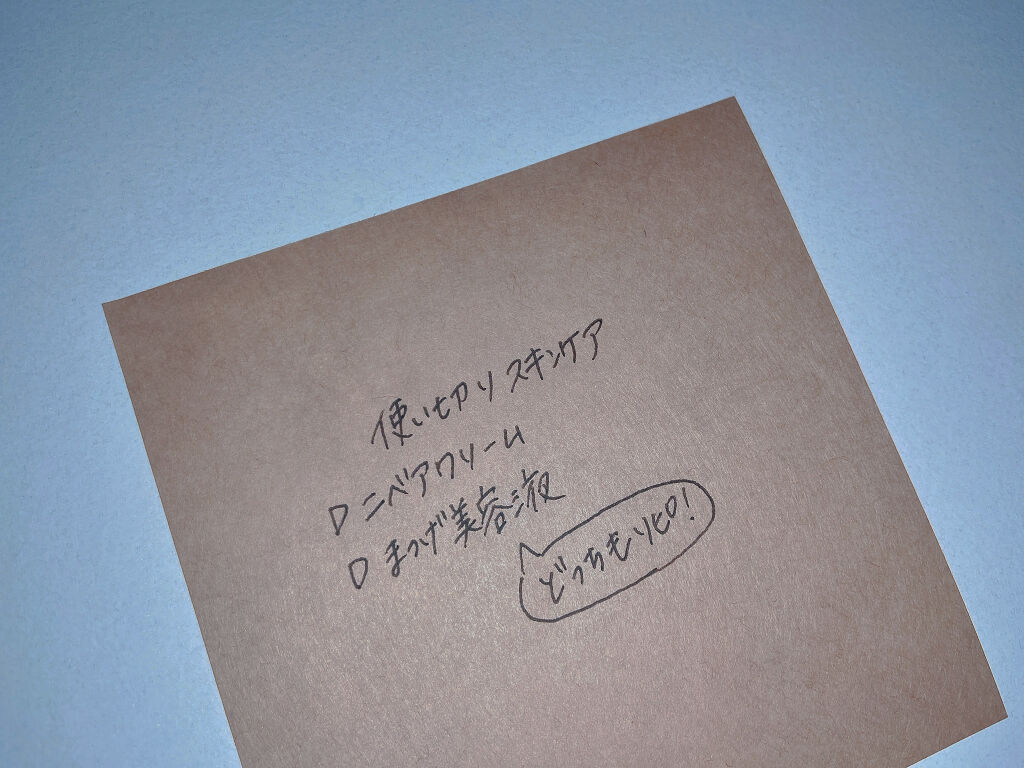 使い切りスキンケア
▷ ニベアクリーム
▷ まつげ美容液
どっちもリピ!